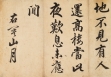 地不見有人
還高樓當此
夜歎息未應
閒
右關山月